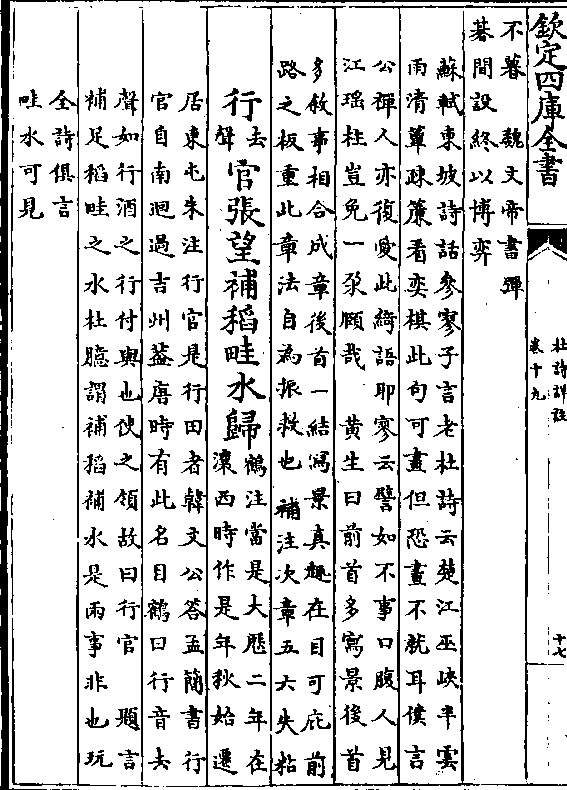 欽定四庫全書
杜詩詳註
卷十九
十七
不暮　魏文帝書彈
碁間設終以博弈
蘇軾東坡詩話參寥子言老杜詩云楚江巫峽半雲
雨清簟疎簾看奕棋此句可畫但恐畫不就耳僕言
公禪人亦復愛此綺語耶寥云譬如不事口腹人見
江瑤柱豈免一㕑顧哉　黄生曰前首多寫景後首
多敘事相合成章後首一結寫景真趣在目可庇前
路之板重此章法自為振救也　補注次章五六失粘
行去聲官張望補稻畦水歸鶴注當是大厯二年在
瀼西時作是年秋始遷
居東屯朱注行官是行田者韓文公答孟簡書行
官自南迴過吉州葢唐時有此名目鶴曰行音去
聲如行酒之行付與也使之領故曰行官　題言
補足稻畦之水杜臆謂補稻補水是兩事非也玩
全詩俱言
畦水可見